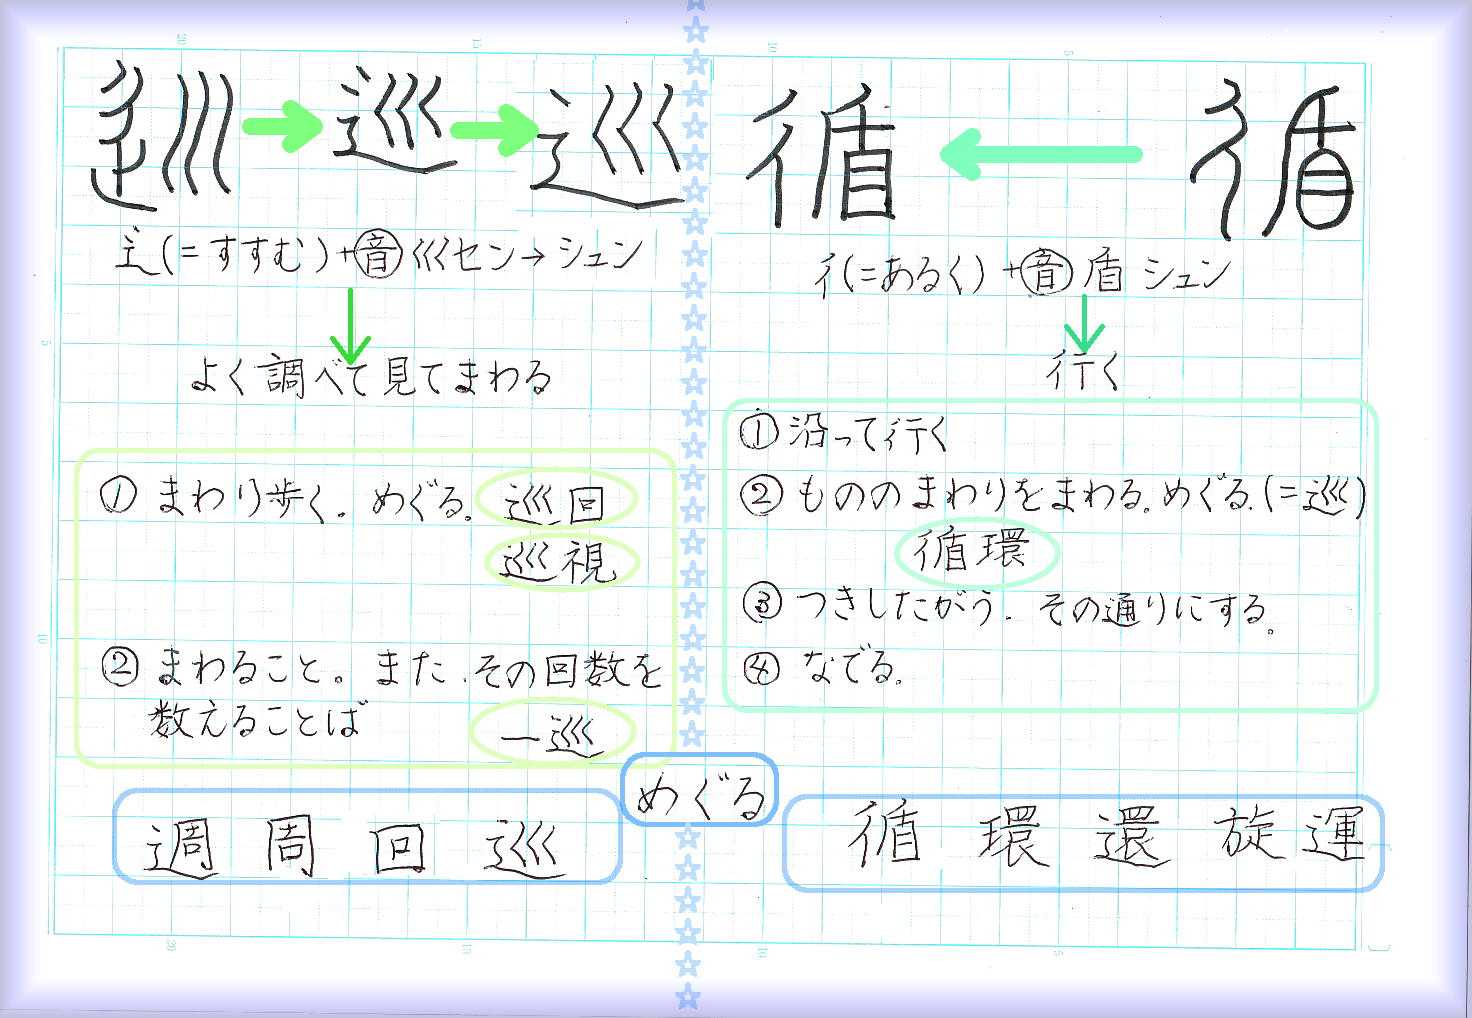 循 循
彳(=あるく)+音盾シュン
行く
① 沿って行く
② もののまわりをまわる。めぐる。(=巡)
循環
③ つきしたがう。その通りにする。
④ なでる。
巡 巡 巡
辶(=すすむ)+音巛セン→シュン
よく調べて見てまわる
① まわり歩く。めぐる。巡回
巡視
② まわること。また、その回数を
数えることば
一巡
めぐる
週 周 回 巡
循 環 還 旋 運
20 15 10 5
5
10
20 15 10 5